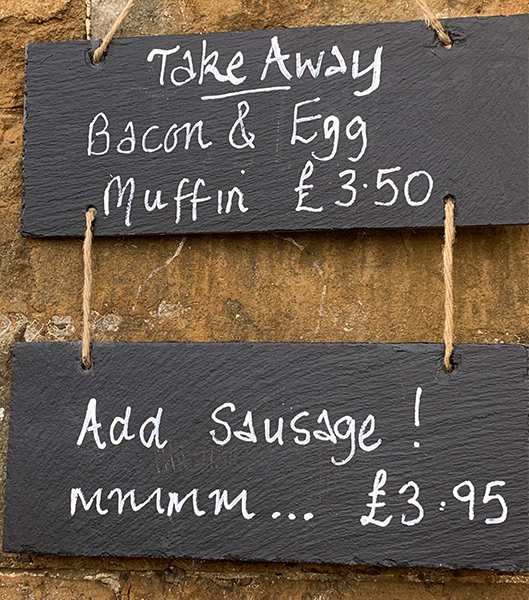 Take Away
Bacon & Egg
Muffin £3.50
Add Sausage!
mmmm... £3.95